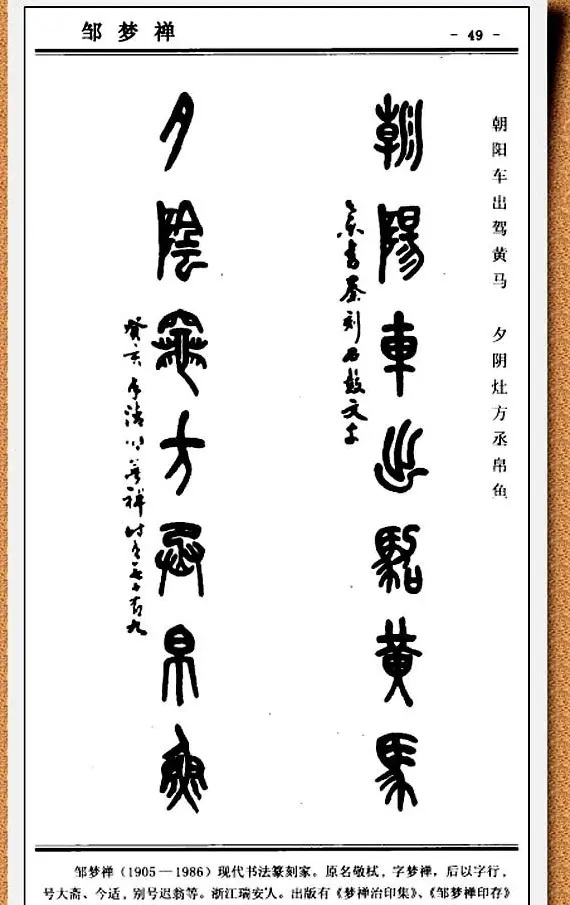 邹梦禅
- 49 -
朝阳车出驾黄马 夕阴灶方丞帛鱼
朝陽車出駕黄馬
書秦刻石鼓文字
夕陰竈方丞帛魚
癸亥 清明 梦禅时年七十有九
邹梦禅（1905—1986）现代书法篆刻家。原名敬栻，字梦禅，后以字行，
号大斋、今适，别号迟翁等。浙江瑞安人。出版有《梦禅治印集》、《邹梦禅印存》